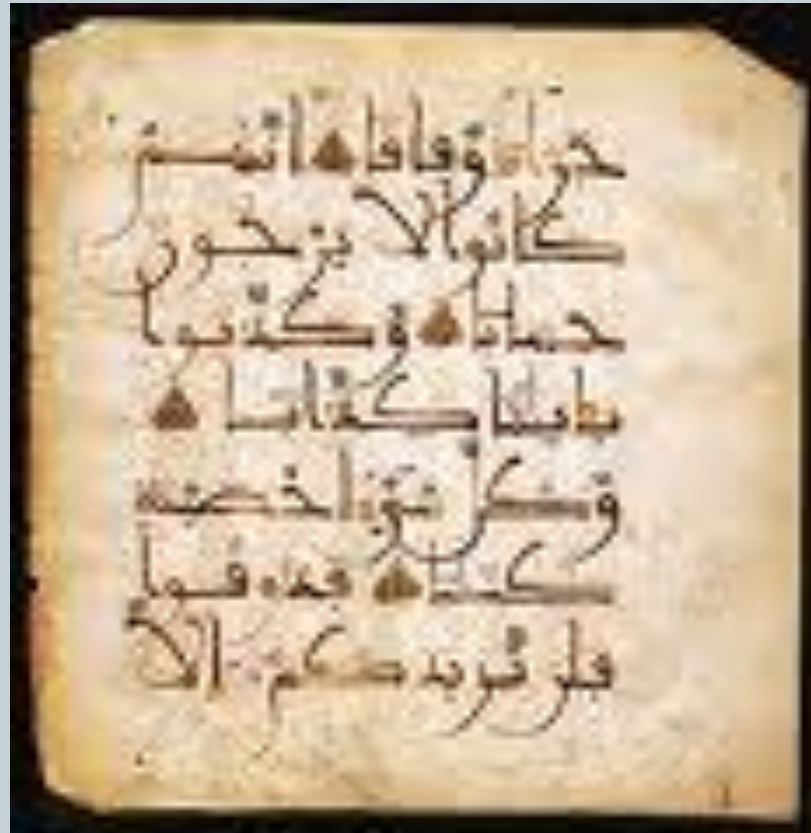 جزاء وفاقا انهم
كانوا لا يرجون
حسابا وكذبوا
بايتنا كذابا
وكل شىء احصينه
كتبا فذوقوا
فلن نزيدكم الا